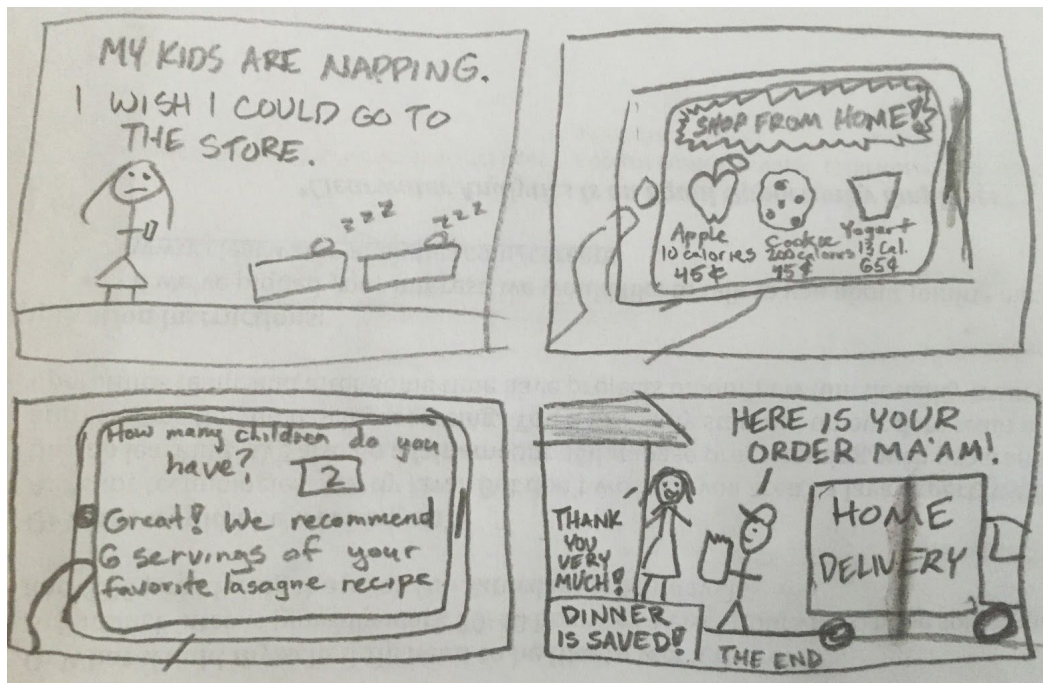 MY KIDS ARE NAPPING.
I WISH I COULD GO TO
THE STORE.
z z z
z z z
SHOP FROM HOME!
Apple
10 calories
45¢
Cookie
200 calories
45¢
Yogart
13 cal.
65¢
How many children do you
have? 2
Great! We recommend
6 servings of your
favorite lasagne recipe
HERE IS YOUR
ORDER MA'AM!
THANK
YOU
VERY
MUCH!
HOME
DELIVERY
DINNER
IS SAVED!
THE END